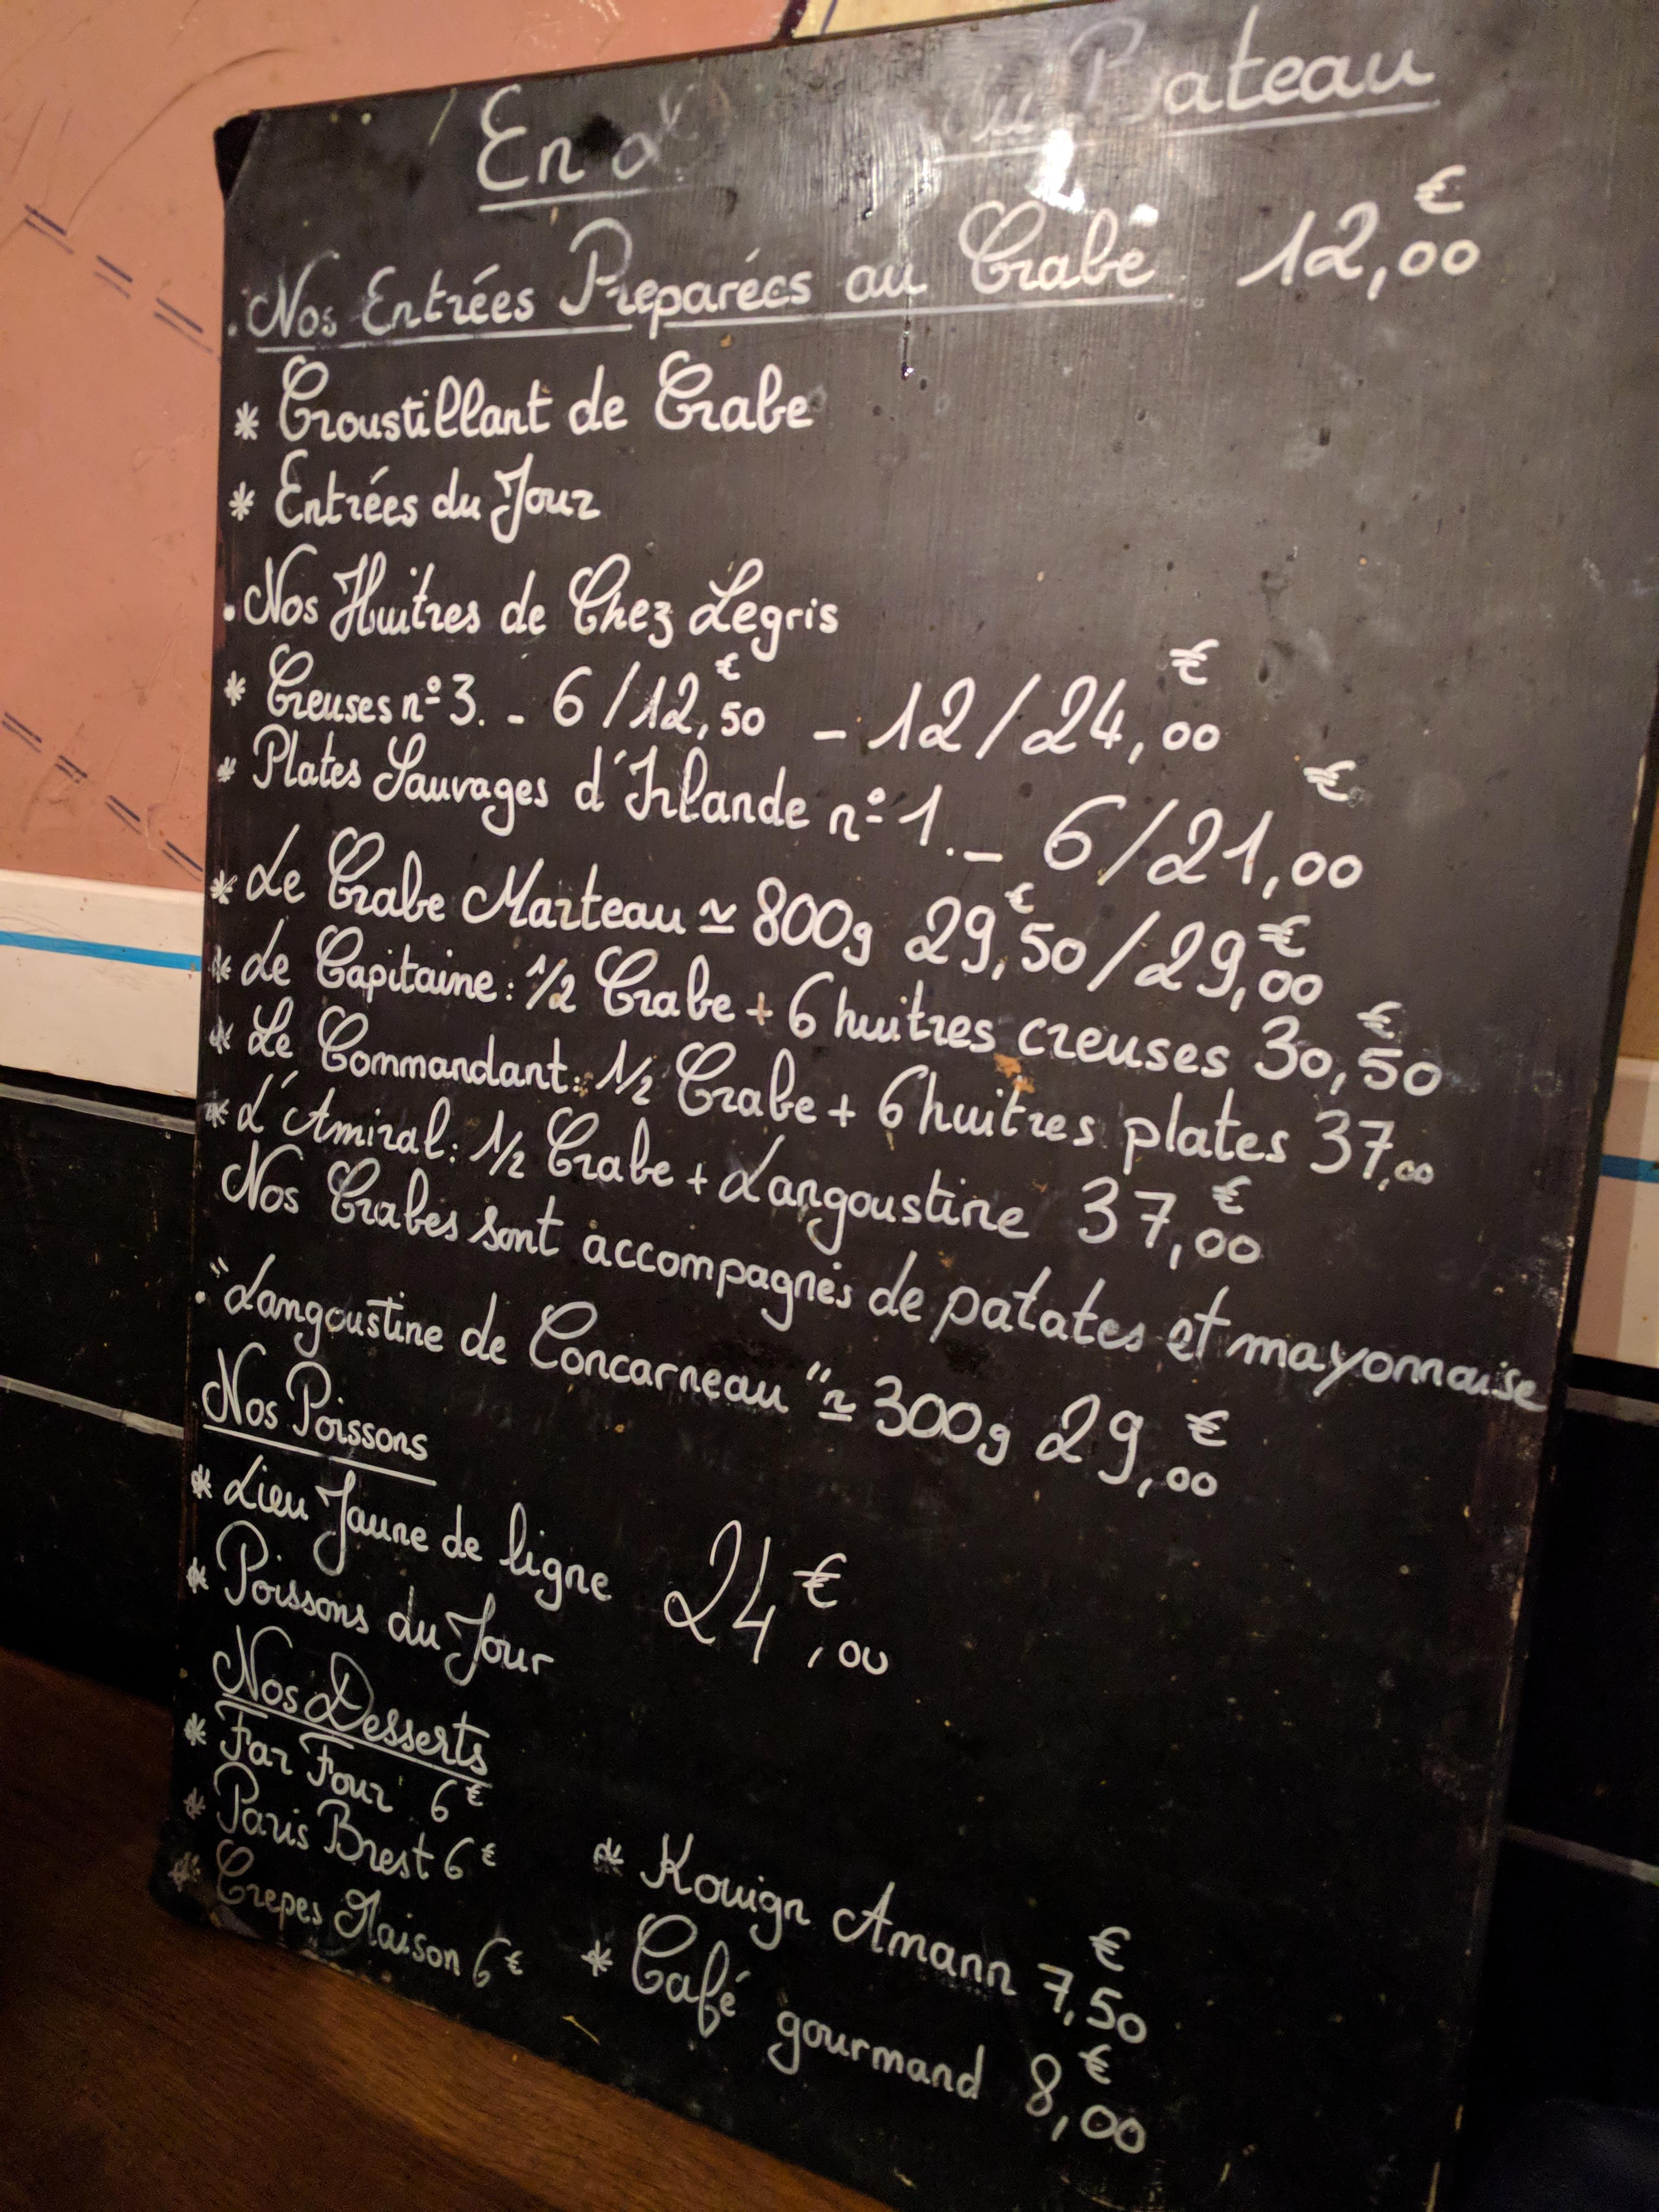 En d du Bateau
. Nos Entrées Preparées au Crabe 12,00 €
* Croustillant de Crabe
* Entrées du Jour
. Nos Huitres de Chez Legris
* Creuses n° 3. - 6/12,50 € - 12/24,00 €
* Plates Sauvages d'Irlande n° 1. - 6/21,00 €
* Le Crabe Marteau ≃ 800g 29,50 € / 29,00 €
* Le Capitaine : 1/2 Crabe + 6 huitres creuses 30,50 €
* Le Commandant : 1/2 Crabe + 6 huitres plates 37,00
* L'Amiral : 1/2 Crabe + Langoustine 37,00 €
Nos Crabes sont accompagnés de patates et mayonnaise
. "Langoustine de Concarneau" ≃ 300g 29,00 €
Nos Poissons
* Lieu Jaune de ligne 24,00 €
* Poissons du Jour
Nos Desserts
* Far Four 6 €
* Paris Brest 6 €
* Crepes Maison 6 €
* Kouign Amann 7,50 €
* Café gourmand 8,00 €